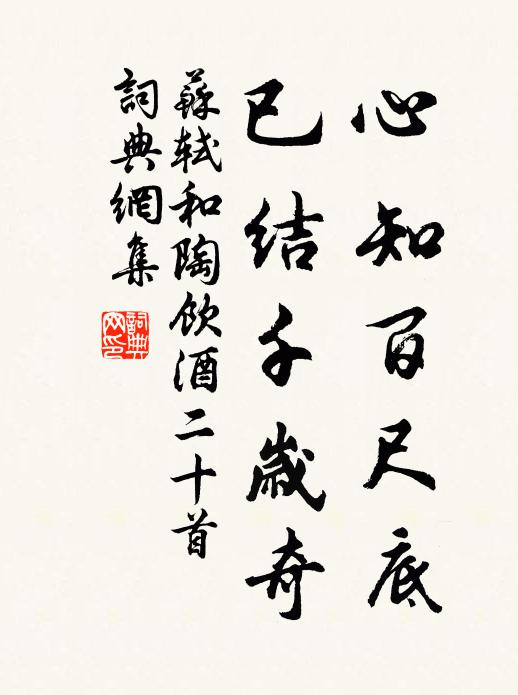 心知百尺底
已結千歲奇
蘇軾和陶飲酒二十首
詞典網集
詞典網印